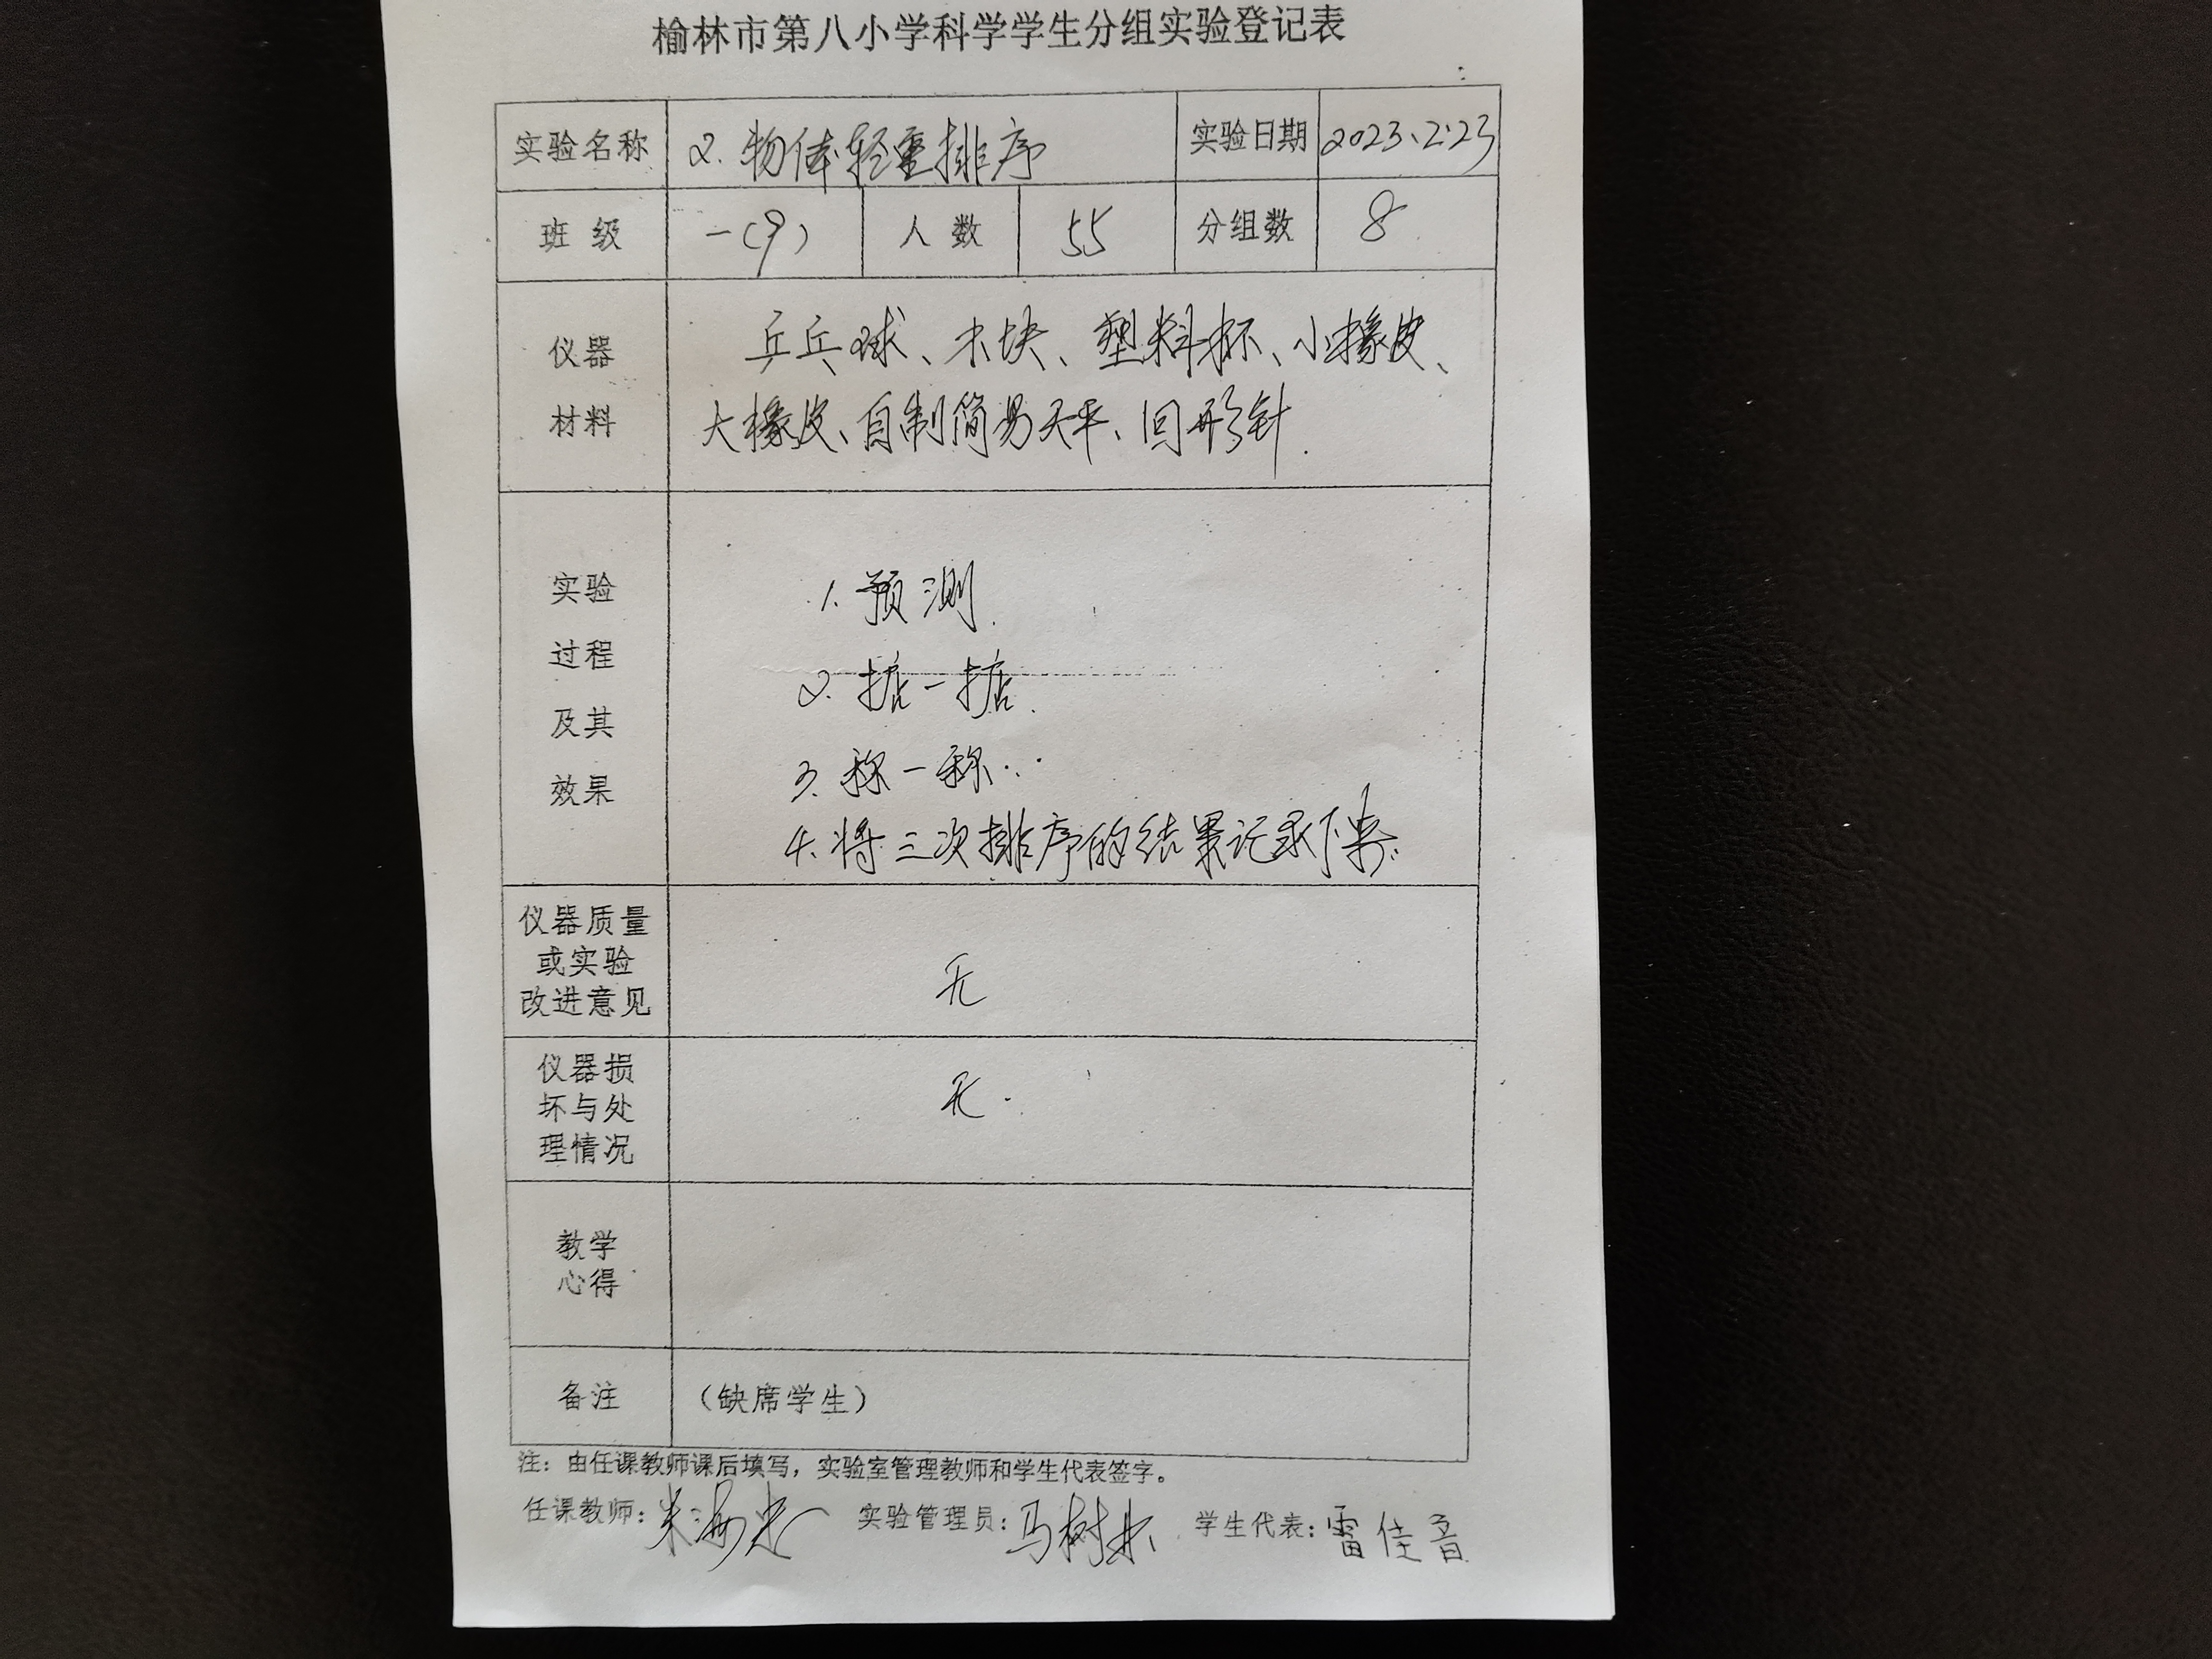 榆林市第八小学科学学生分组实验登记表
实验名称 2. 物体轻重排序 实验日期 2023、2.23
班级 一(9) 人数 55 分组数 8
仪器
材料
乒乓球、木块、塑料杯、小橡皮、
大橡皮、自制简易天平、回形针.
实验
过程
及其
效果
1. 预测.
2. 掂一掂.
3. 称一称.
4. 将三次排序的结果记录下来.
仪器质量
或实验
改进意见
无
仪器损
坏与处
理情况
无.
教学
心得
备注 (缺席学生)
注：由任课教师课后填写，实验室管理教师和学生代表签字。
任课教师： 实验管理员：马树林 学生代表：雷佳音